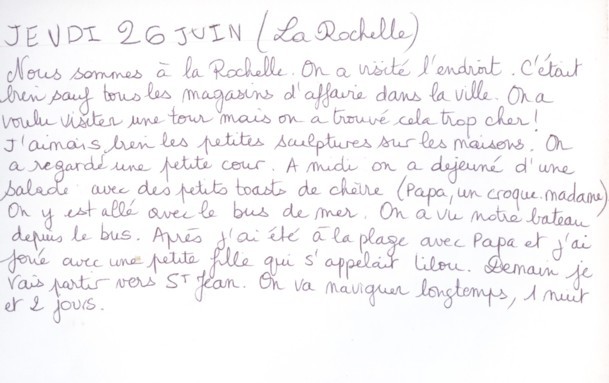 JEUDI 26 JUIN (La Rochelle)
Nous sommes à la Rochelle. On a visité l'endroit. C'était
bien sauf tous les magasins d'affaire dans la ville. On a
voulu visiter une tour mais on a trouvé cela trop cher!
J'aimais bien les petites sculptures sur les maisons. On
a regardé une petite cour. A midi on a dejeuné d'une
salade avec des petits toasts de chèvre (Papa, un croque-madame)
On y est allé avec le bus de mer. On a vu notre bateau
depuis le bus. Après j'ai été à la plage avec Papa et j'ai
joué avec une petite fille qui s'appelait Lilou. Demain je
vais partir vers ST Jean. On va naviguer longtemps, 1 nuit
et 2 jours.